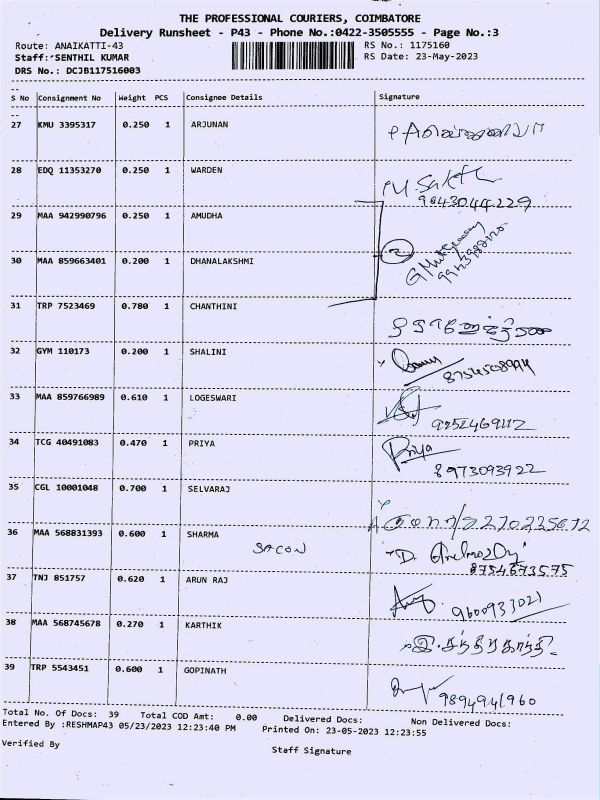 THE PROFESSIONAL COURIERS, COIMBATORE
Delivery Runsheet - P43 - Phone No.:0422-3505555 - Page No.:3
Route: ANAIKATTI-43 RS No.: 1175160
Staff: SENTHIL KUMAR RS Date: 23-May-2023
DRS No.: DCJB117516003
S No Consignment No Weight PCS Consignee Details Signature
27 KMU 3395317 0.250 1 ARJUNAN
28 EDQ 11353270 0.250 1 WARDEN M. Sakthi
9043044229
29 MAA 942990796 0.250 1 AMUDHA
30 MAA 859663401 0.200 1 DHANALAKSHMI
31 TRP 7523469 0.780 1 CHANTHINI
32 GYM 110173 0.200 1 SHALINI
8754508994
33 MAA 859766989 0.610 1 LOGESWARI
34 TCG 40491083 0.470 1 PRIYA Priya
8973093922
35 CGL 10001048 0.700 1 SELVARAJ
36 MAA 568831393 0.600 1 SHARMA
SACON
8754673575
37 TNJ 851757 0.620 1 ARUN RAJ
9600933021
38 MAA 568745678 0.270 1 KARTHIK இ.சந்திரகாந்தி
39 TRP 5543451 0.600 1 GOPINATH
9894941960
Total No. Of Docs: 39 Total COD Amt: 0.00 Delivered Docs: Non Delivered Docs:
Entered By :RESHMAP43 05/23/2023 12:23:40 PM Printed On: 23-05-2023 12:23:55
Verified By Staff Signature